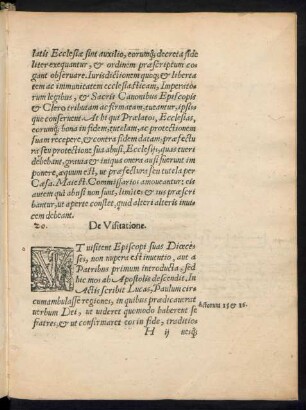 latis Ecclesiæ sint auxilio, eorumq; decreta fide
liter exequantur, & ordinem præscriptum co
gant obseruare. Iurisdictionem quoq; & liberta
tem ac immunitatem ecclesiasticam, Imperato
rum legibus, & Sacris Canonibus Episcopis
& Clero tributam ac firmatam, tueantur, ipsis
que conseruent. At hi qui Prælatos, Ecclesias,
eorumq; bona in fidem, tutelam, ac protectionem
suam recepere, & contra fidem datam, præfectu
ris seu protectione sua abusi, Ecclesijs, quas tueri
debebant, grauia & iniqua onera ausi fuerint im
ponere, æquum est, ut præfecturis seu tutela per
Cæsa. Maiest. Commissarios amoueantur: eis
autem qui abusi non sunt, limites & ius præscri
bantur, ut aperte constet, quid alteri alteris inui
cem debeant.
20. De Visitatione.
VT uisitent Episcopi suas Diœce
ses, non nupera est inuentio, aut a
Patribus primum introducta, sed
hic mos ab Apostolis descendit. In
Actis scribit Lucas, Paulum cir
cumambulasse regiones, in quibus prædicauerat
uerbum Dei, ut uideret quomodo haberent se
fratres, & ut confirmaret eos in fide, traditio
Actorum 15 & 16.
H ij neq;